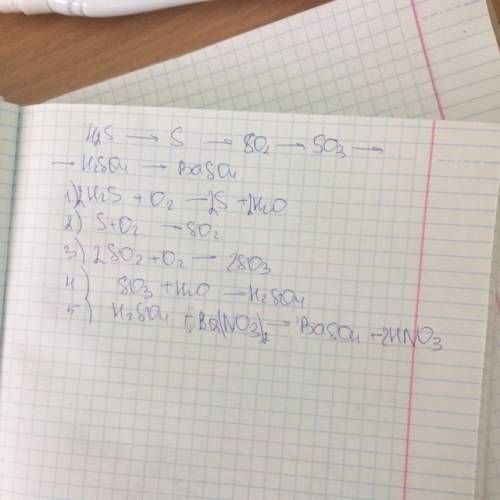 H2S → S → SO2 → SO3 →
→ H2SO4 → BaSO4
1) 2H2S + O2 → 2S + 2H2O
2) S + O2 → SO2
3) 2SO2 + O2 → 2SO3
4) SO3 + H2O → H2SO4
5) H2SO4 + Ba(NO3)2 → BaSO4 + 2HNO3